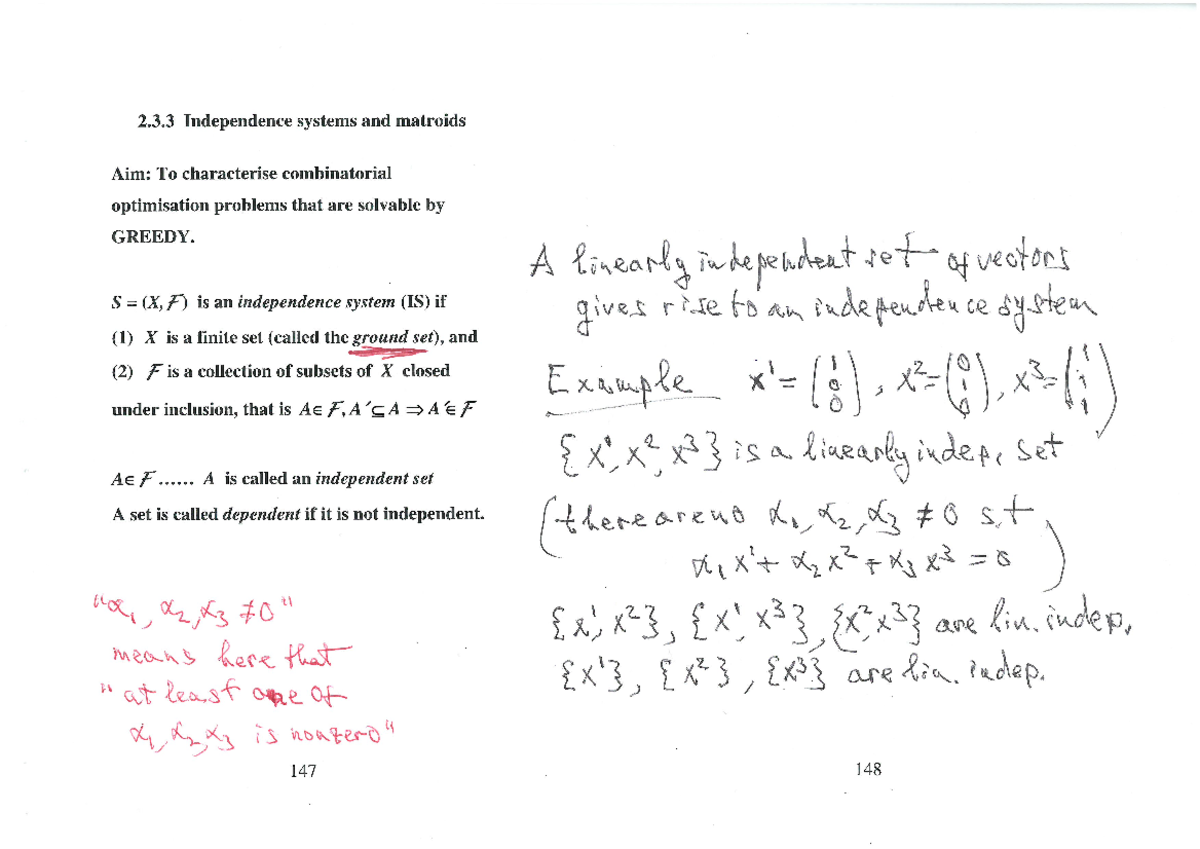 2.3.3 Independence systems and matroids
Aim: To characterise combinatorial
optimisation problems that are solvable by
GREEDY.
S = (X, F) is an independence system (IS) if
(1) X is a finite set (called the ground set), and
(2) F is a collection of subsets of X closed
under inclusion, that is A∈ F, A´⊆ A ⇒ A´∈ F
A∈ F ...... A is called an independent set
A set is called dependent if it is not independent.
"α₁, α₂, α₃ ≠0"
means here that
"at least one of
α₁, α₂, α₃ is nonzero"
147
A linearly independent set of vectors
gives rise to an independence system
Example x¹= (1 0 0), x²= (0 1 0), x³= (1 1 1)
{x¹, x², x³} is a linearly indep. set
(there are no α₁, α₂, α₃ ≠ 0 s.t.
α₁x¹+ α₂x² + α₃x³ = 0)
{x¹, x²}, {x¹, x³}, {x², x³} are lin. indep.
{x¹}, {x²}, {x³} are lin. indep.
148